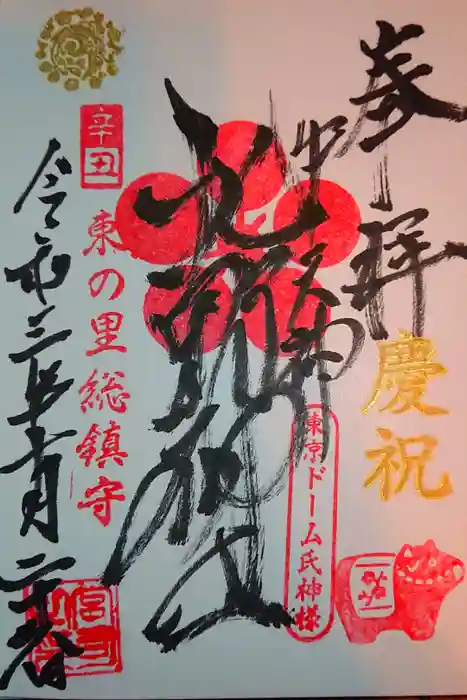 奉拝
慶祝
牛天神
東京ドーム氏神様
北野神社
辛丑
東の里総鎮守
令和三年